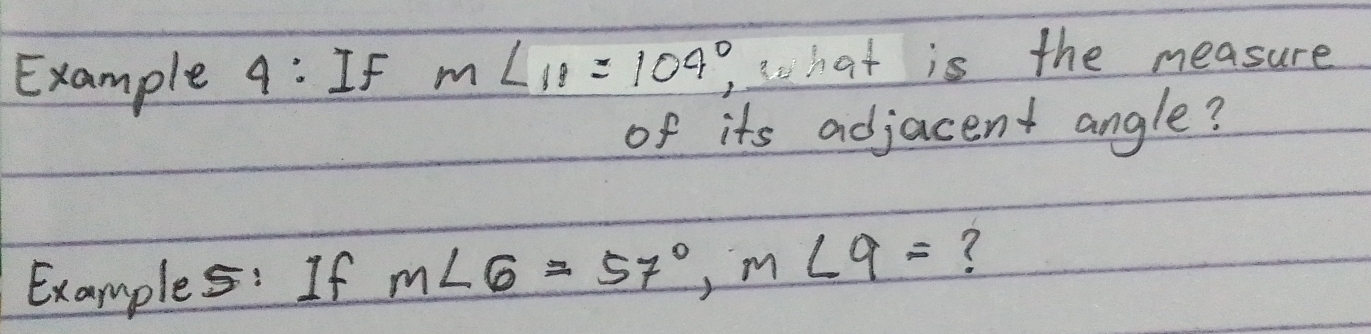 Example 4: If m∠11 = 104°, what is the measure
of its adjacent angle?
Example 5: If m∠6 = 57°, m∠9 = ?